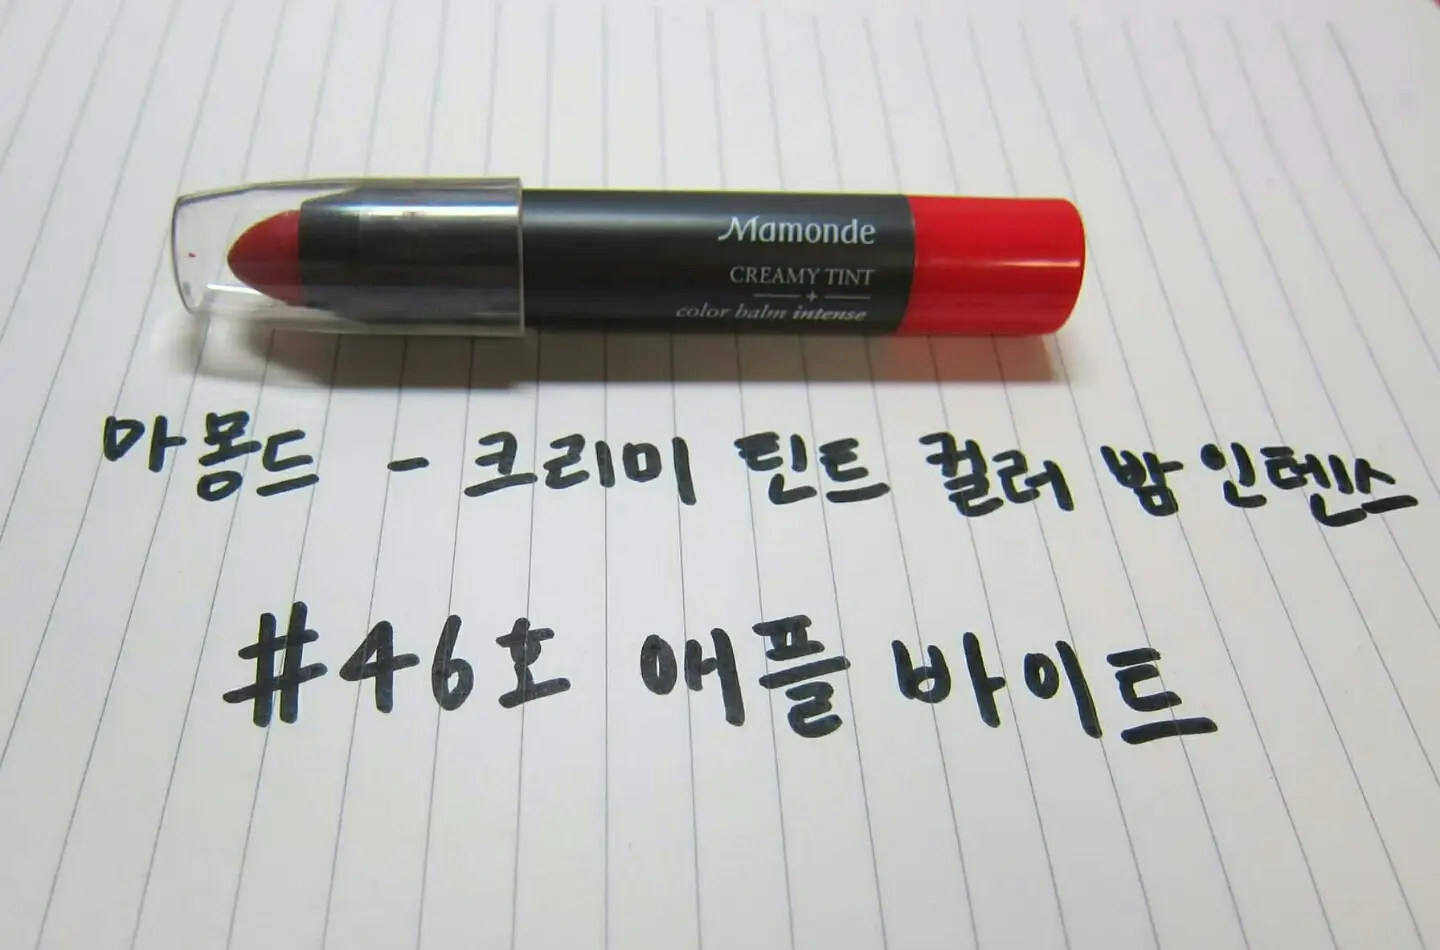 Mamonde
CREAMY TINT
color balm intense
마몽드 - 크리미 틴트 컬러 밤 인텐스
#46호 애플 바이트